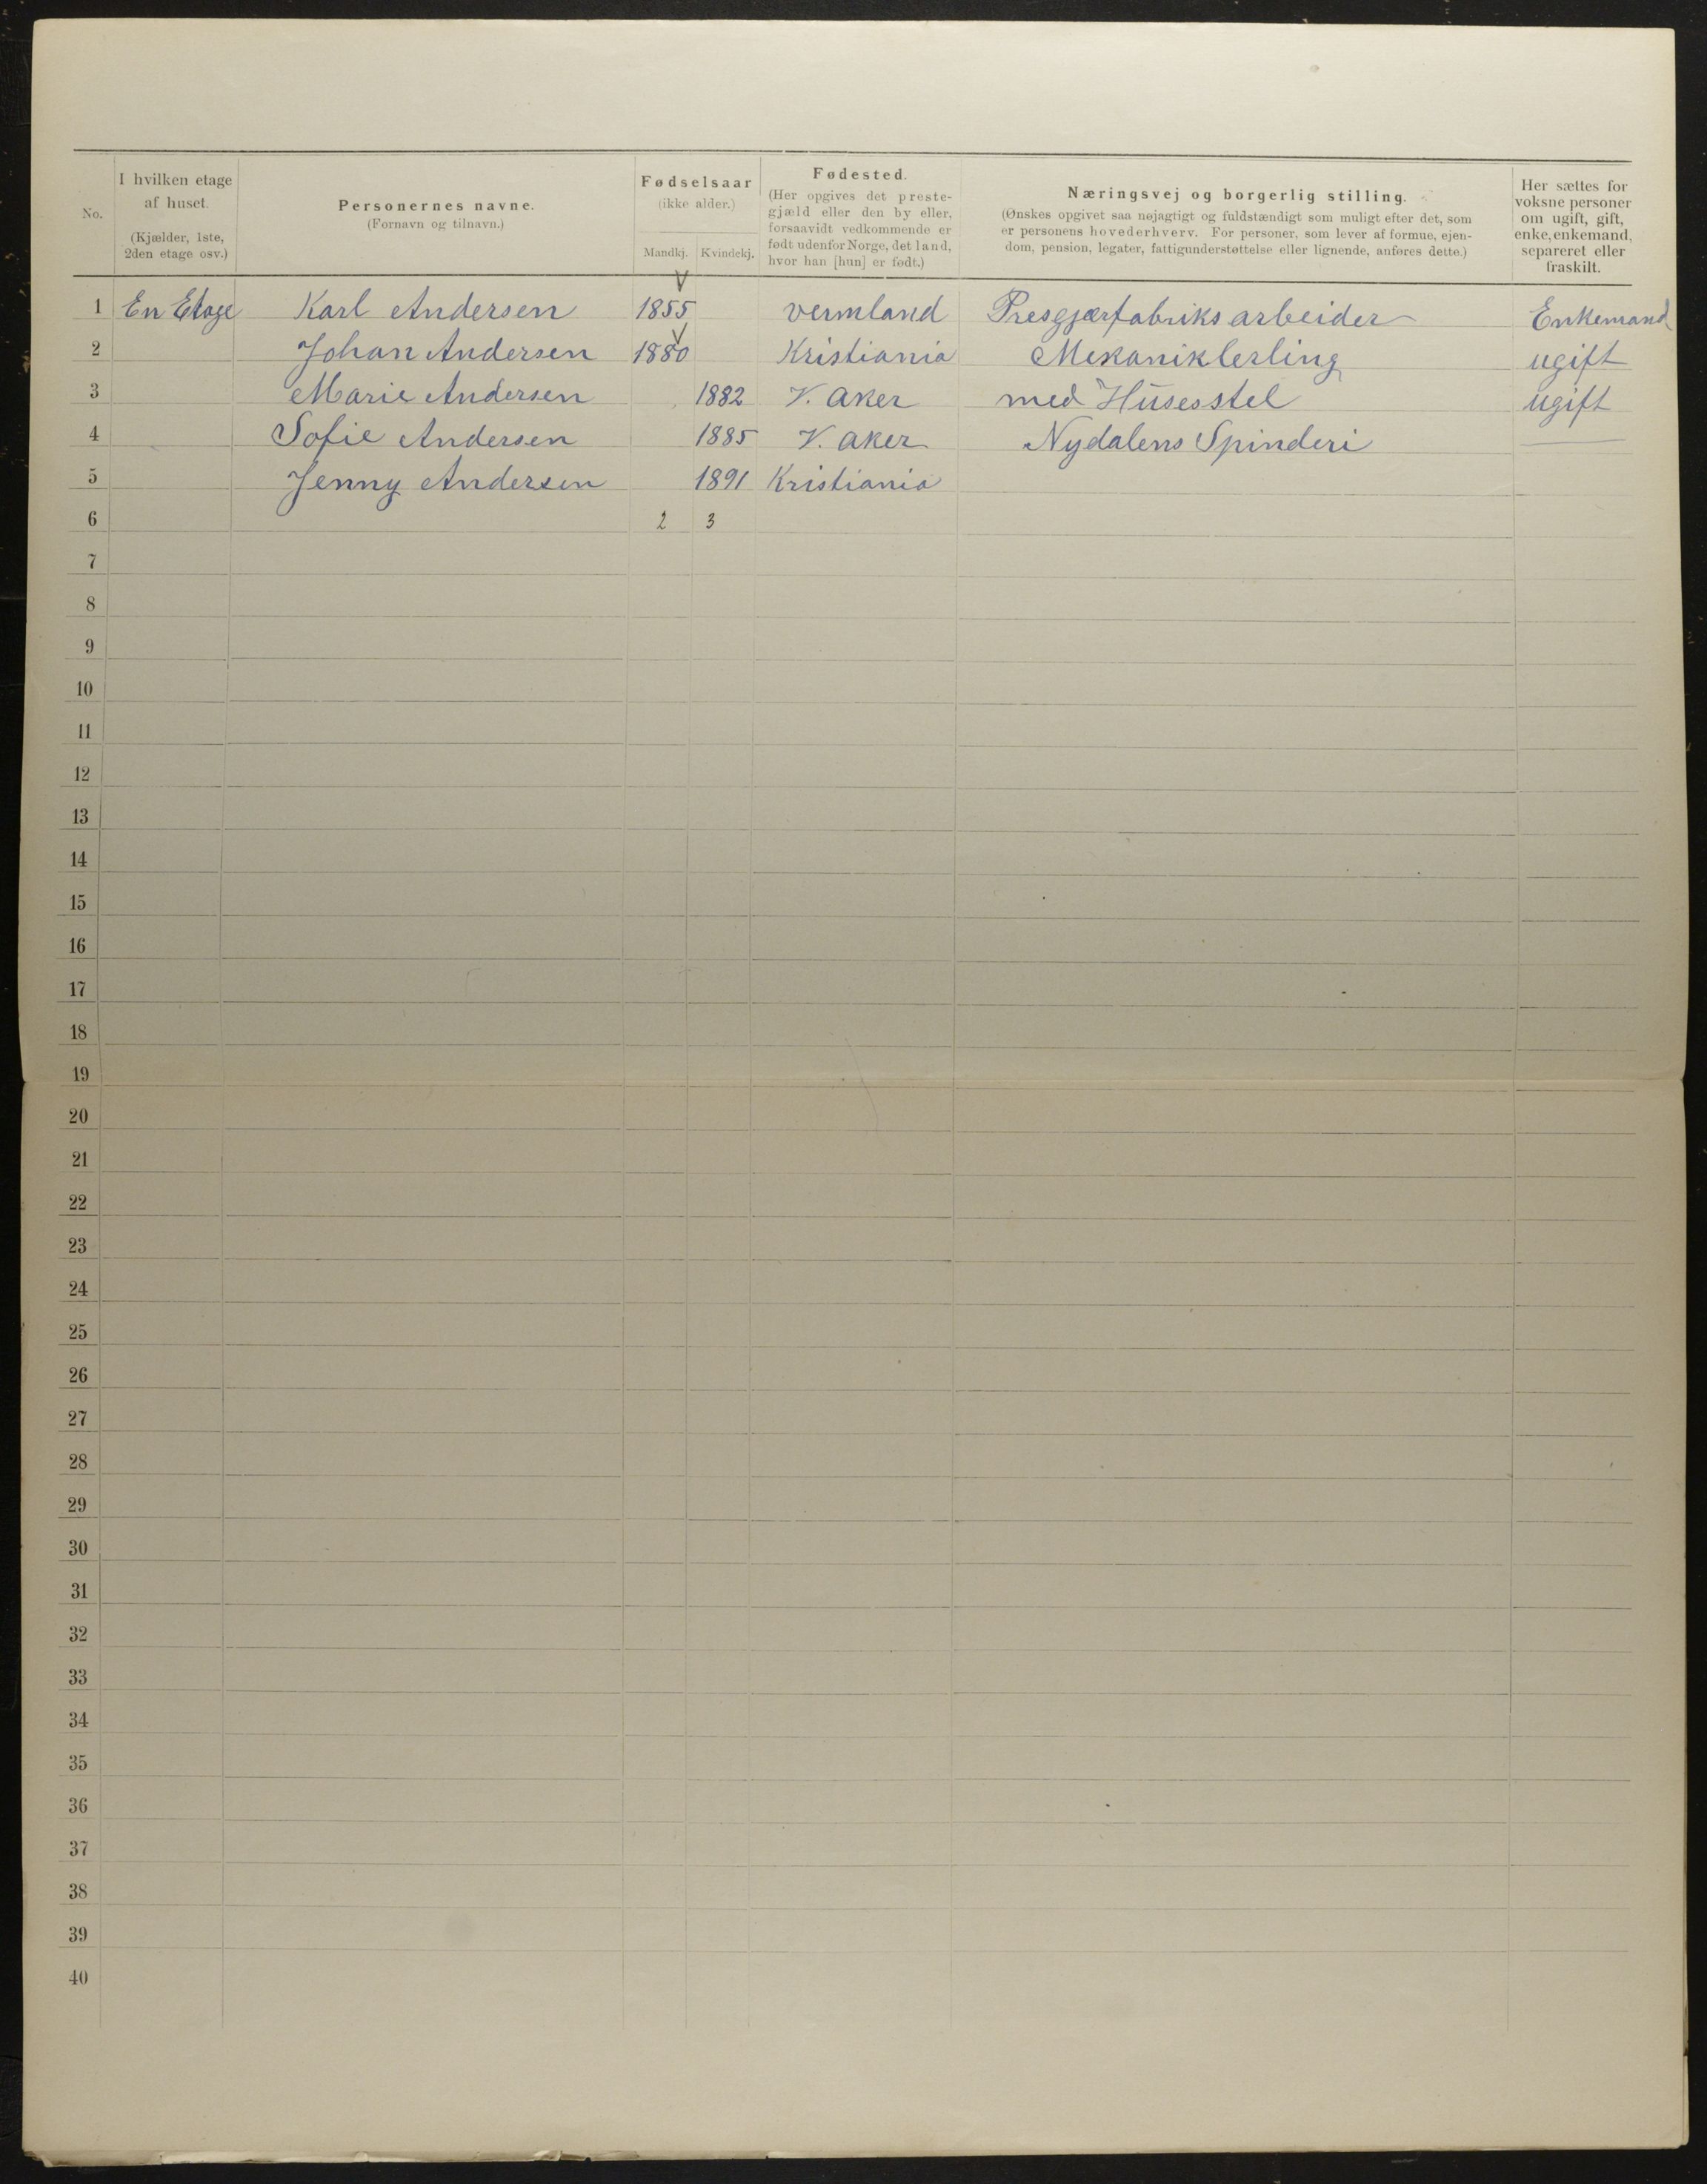 No.
I hvilken etage
af huset.
(Kjælder, 1ste,
2den etage osv.)
Personernes navne.
(Fornavn og tilnavn.)
Fødselsaar
(ikke alder.)
Mandkj. Kvindekj.
Fødested.
(Her opgives det preste-
gjæld eller den by eller,
forsaavidt vedkommende er
født udenfor Norge, det land,
hvor han [hun] er født.)
Næringsvej og borgerlig stilling.
(Ønskes opgivet saa nøjagtigt og fuldstændigt som muligt efter det, som
er personens hovederhverv. For personer, som lever af formue, ejen-
dom, pension, legater, fattigunderstøttelse eller lignende, anføres dette.)
Her sættes for
voksne personer
om ugift, gift,
enke, enkemand,
separeret eller
fraskilt.
1 En Etage Karl Andersen 1855 vermland Presgjærfabriks arbeider Enkemand
2 Johan Andersen 1880 Kristiania Mekaniklerling ugift
3 Marie Andersen 1882 V. Aker med Husesstel ugift
4 Sofie Andersen 1885 V. Aker Nydalens Spinderi
5 Jenny Andersen 1891 Kristiania
6 2 3
7
8
9
10
11
12
13
14
15
16
17
18
19
20
21
22
23
24
25
26
27
28
29
30
31
32
33
34
35
36
37
38
39
40